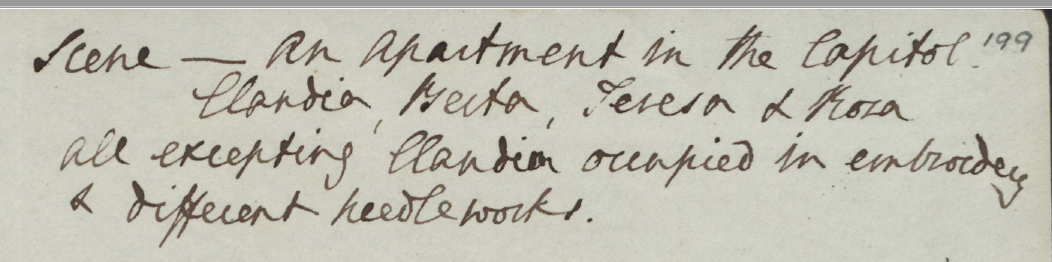 Scene — An Apartment in the Capitol. 199
Claudia, Berta, Teresa & Rosa
all excepting Claudia occupied in embroidery
& different needleworks.